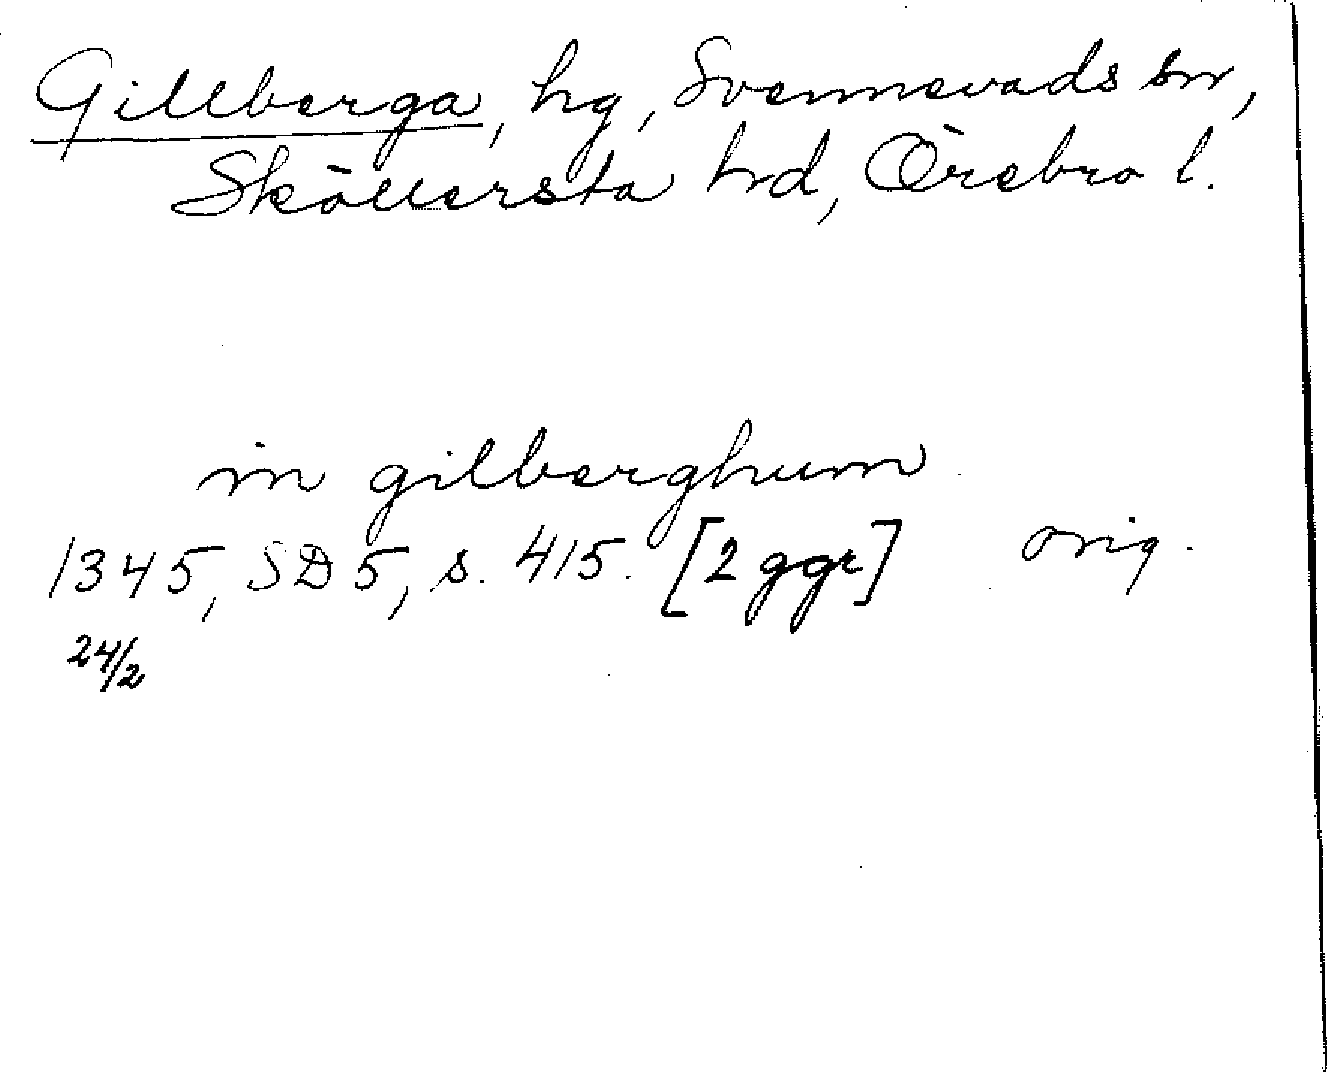 Gillberga, hg, Svennevads sn,
Sköllersta hrd, Örebro l.
in gilberghum
1345, SD 5, s. 415. [2 ggr] orig.
24/2